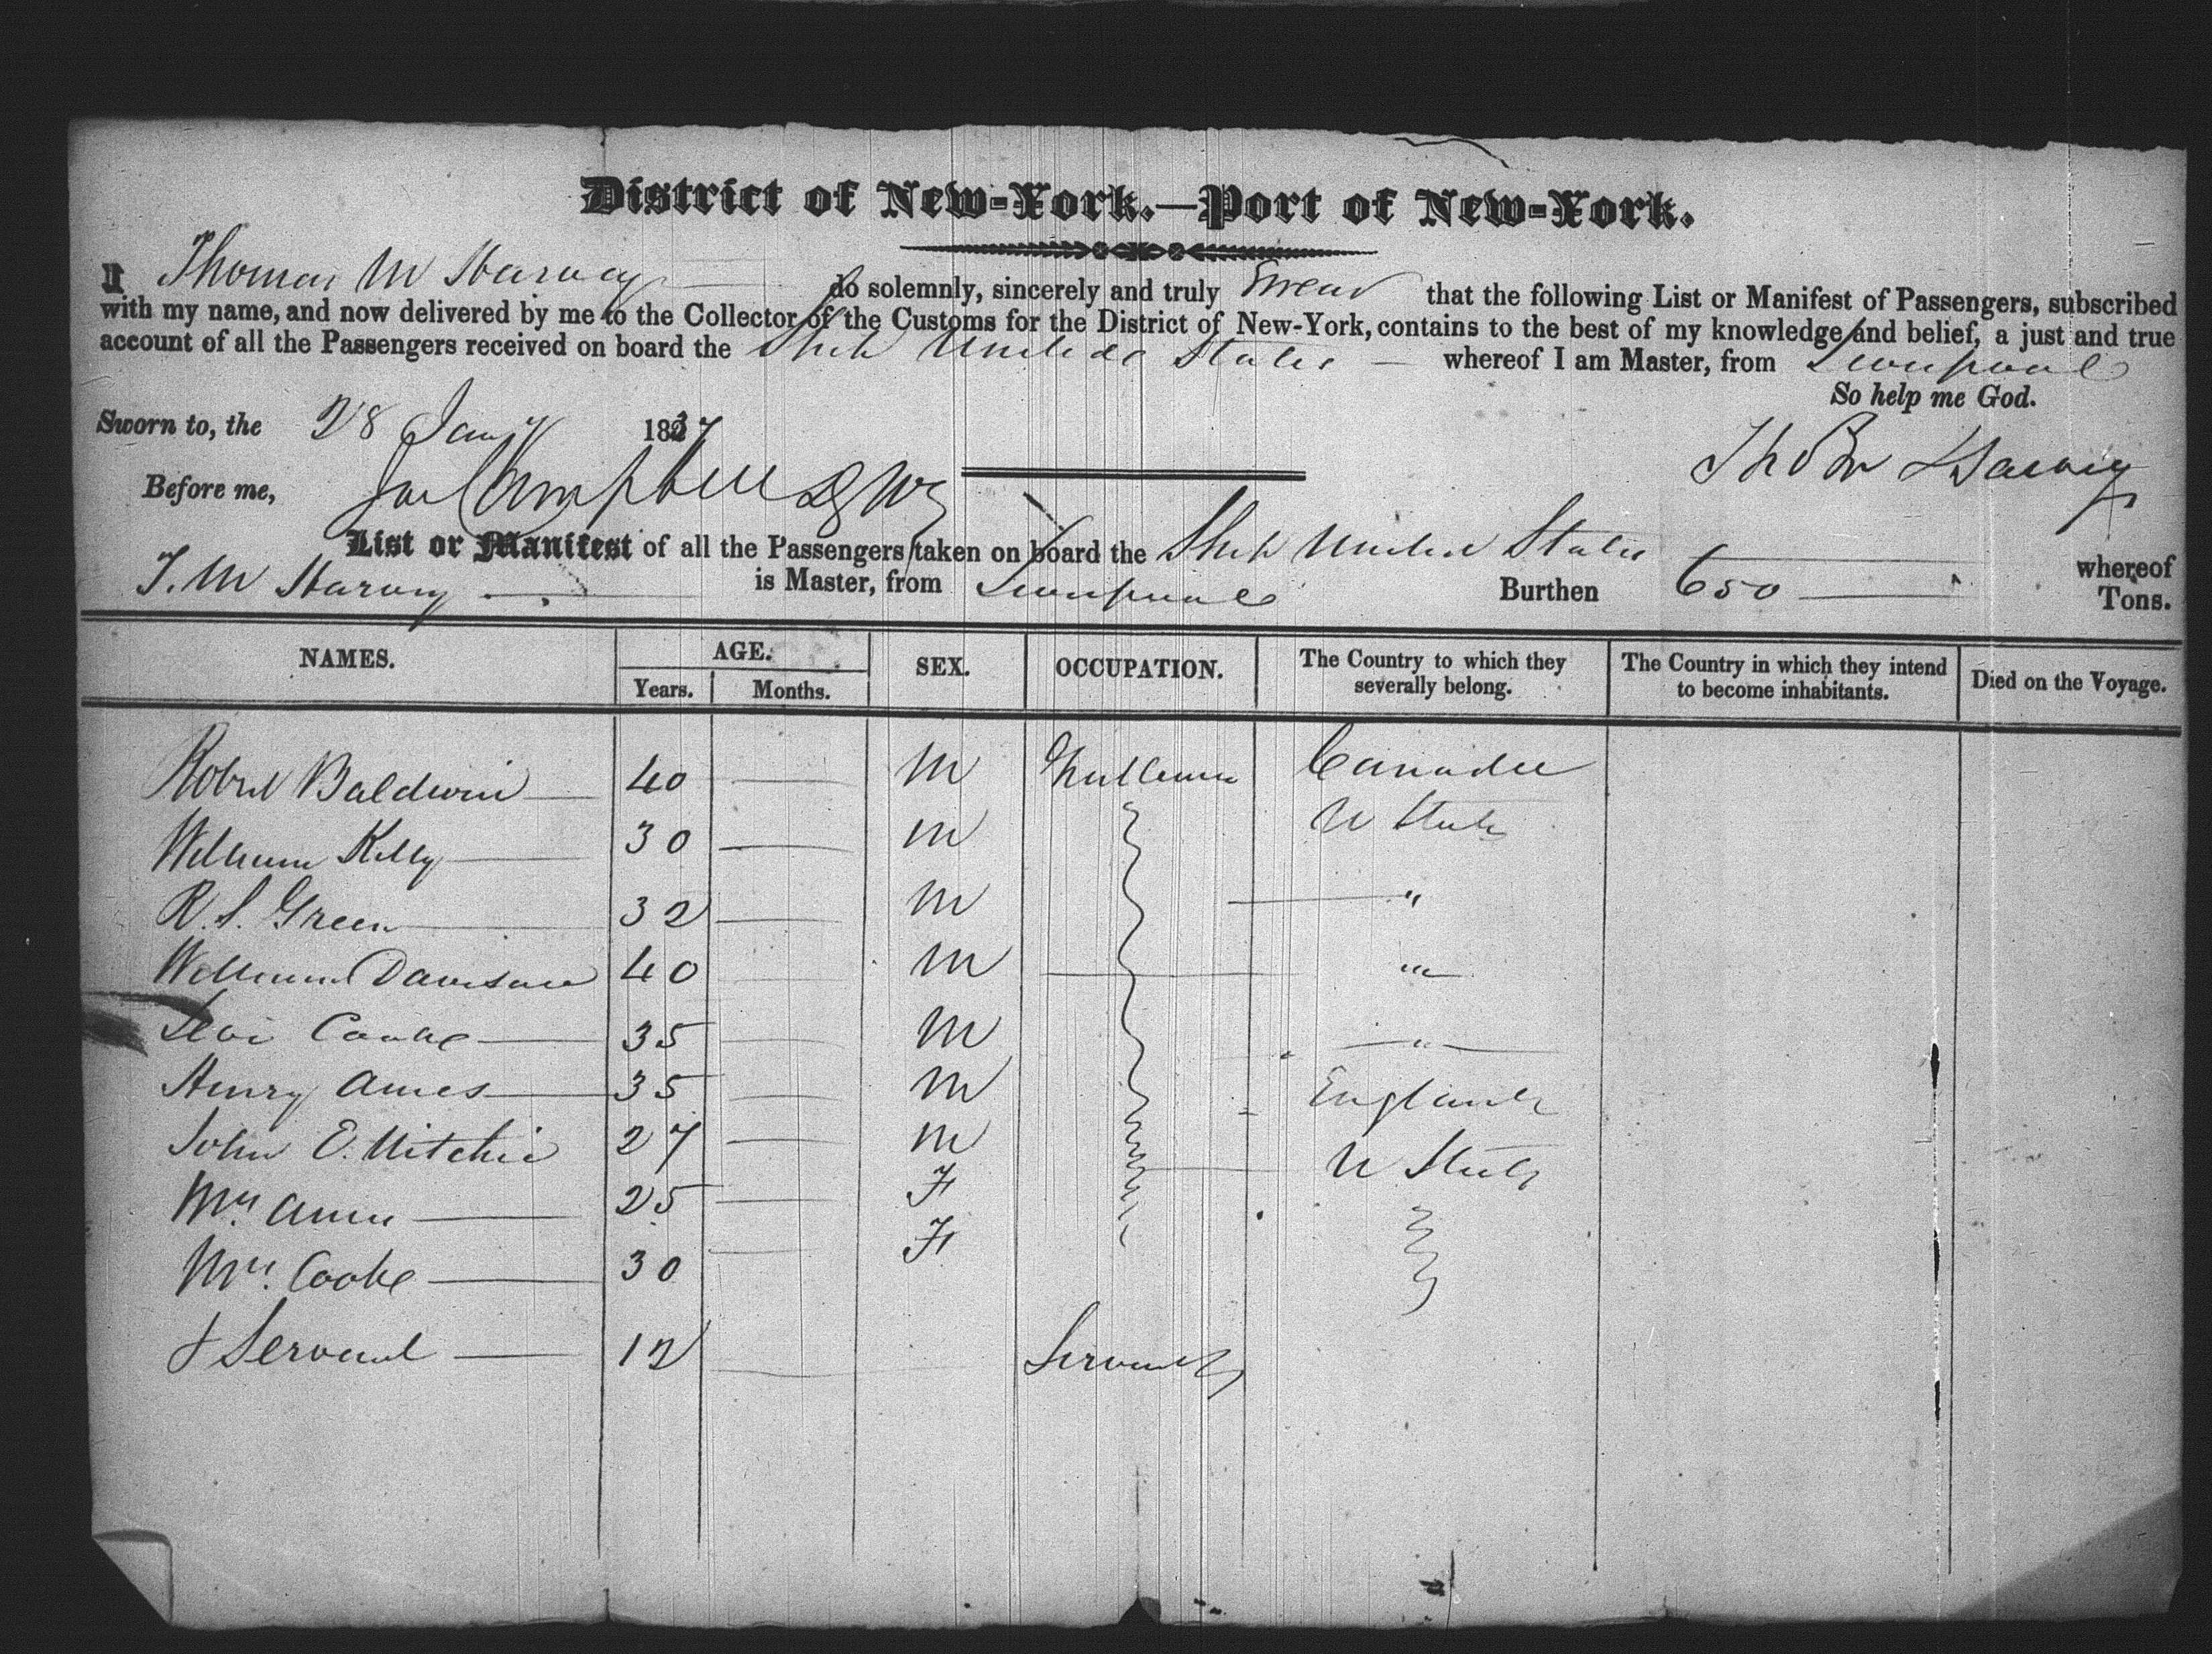 District of New-York.—Port of New-York.
I Thomas M Harvey do solemnly, sincerely and truly Swear that the following List or Manifest of Passengers, subscribed
with my name, and now delivered by me to the Collector of the Customs for the District of New-York, contains to the best of my knowledge and belief, a just and true
account of all the Passengers received on board the Ship United States — whereof I am Master, from Liverpool
So help me God.
Sworn to, the 28 Jany 1837
Before me, Campbell
Harvey
List or Manifest of all the Passengers taken on board the Ship United States whereof
T. M Harvey is Master, from Liverpool Burthen 650 Tons.
NAMES. AGE. SEX. OCCUPATION. The Country to which they severally belong. The Country in which they intend to become inhabitants. Died on the Voyage.
Years. Months.
Robert Baldwin 40 — M Gentleman Canada
William Kelly 30 — M U States
R. S. Green 32 — M "
William Davison 40 M "
Levi Cooke 35 M "
Henry Ames 35 M England
John E. 27 — M U States
Mrs. 25 — F
Mrs. Cooke 30 F
& Servant 12 Servant